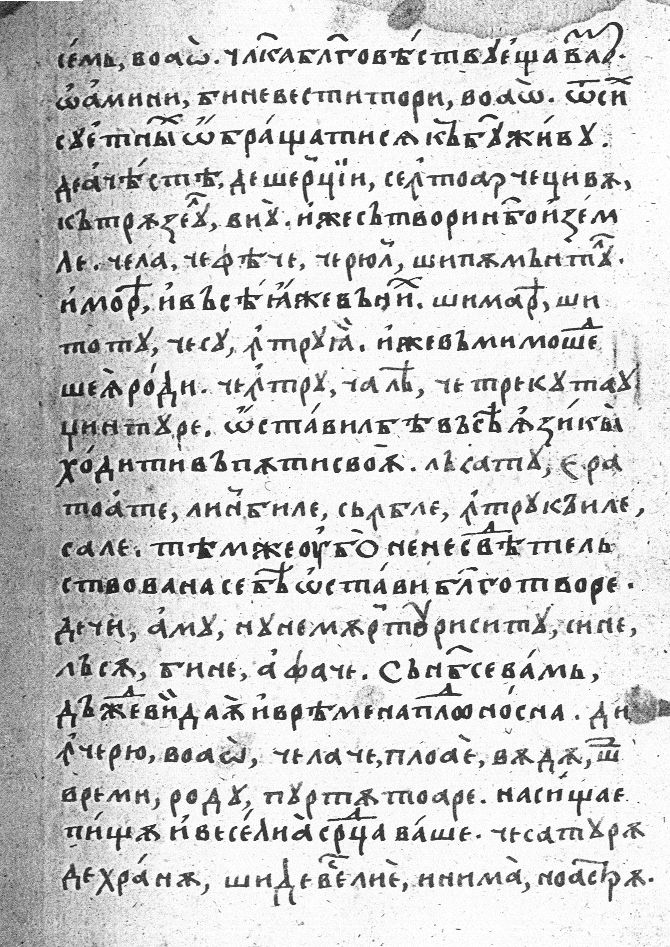 се́мь, воаѡ̀. чл҃ка бл҃говѣ́ствꙋе́ща ва́
ѡ҆а́мини, биневеститори, воаѡ̀. ѿ си́х
сꙋ́етны́х ѡ҆браща́тисѧ къ бг҃ꙋ жи́вꙋ.
деаче́стѣ, дешер̾чїи, се л̾тоарчеци вѧ,
кътрѧ зеꙋ́л, виꙋ̀. и҆́же сътвори н҃бо и҆ зе́м
ле. чела, че фѣче, черюл, ши пѫмънтꙋ́л.
и҆ мо́р, и҆ въсѣ́ ꙗ҆́же въ ни́х. шимар, ши
тотꙋ, чесꙋ, ꙟтрꙋꙗ̀. и҆́же въ мимоше́д
шеѧ ро́ди. че ꙟтрꙋ, чалѣ, че трекꙋтаꙋ
цинтꙋре. ѡ҆ста́вилъ бѣ въсѣ́ ѧ҆зи́кы
ходи́ти въ пѫти своѧ̀. лъсатꙋ, є҆ра
тоа́те, лин̾биле, сърбле, ꙟтрꙋ къиле,
сале. тѣмже оу҆́бо не несвѣ́тель
ствована себѣ̀ ѡ҆ста́ви бл҃готворе.
дечи, а҆мꙋ, нꙋ немѫртꙋриситꙋ, сине,
лъсѧ, бине, а҆фаче. Сън҃бсе ва́мь,
дъжде́ви даѧ̀ и҆ врѣмена плѡдоно́сна. ди
ꙟчерю, воаѡ̀, челаче, плоаѐ, вѧдѧ, ши
време́ми, родꙋ, пꙋртѫтоаре. наси́щае
пи́щѫ и҆ весе́лиа ср҃дца ва́ше. чесатꙋрѧ
де хра́нѫ, шиде ве́селиѐ, инима̀, ноастрѧ.